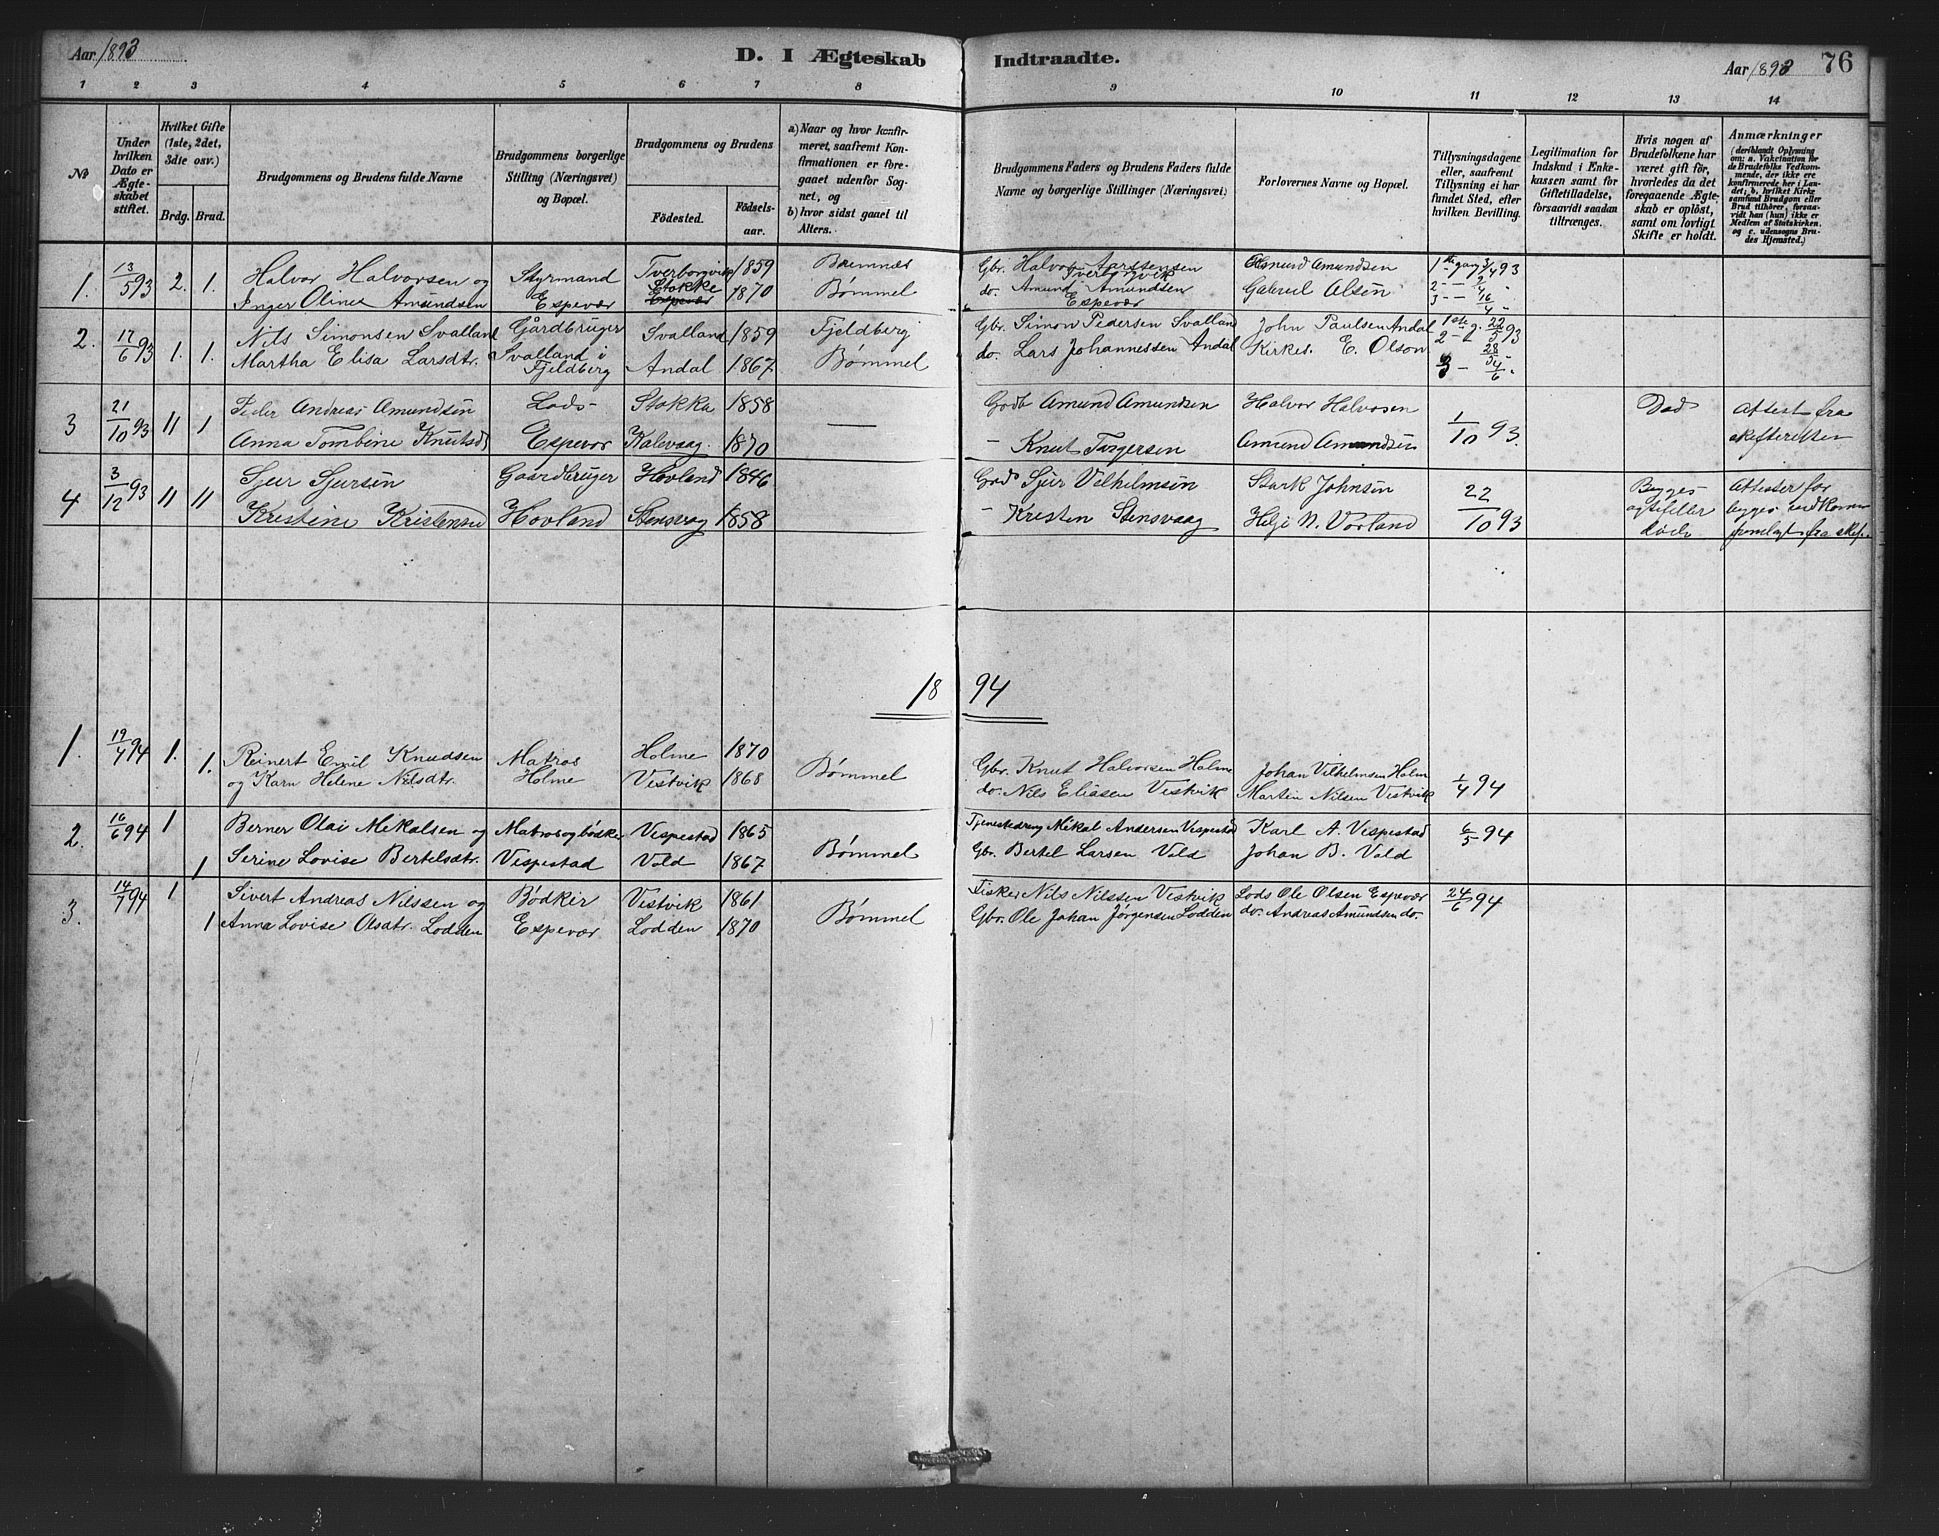 Aar 1893
D. I Ægteskab Indtraadte.
Aar 1893 76
1 2 3 4 5 6 7 8 9 10 11 12 13 14
No
Under hvilken Dato er Ægteskabet stiftet.
Hvilket Gifte (1ste, 2det, 3die osv.)
Brdg. Brud.
Brudgommens og Brudens fulde Navne
Brudgommens borgerlige Stilling (Næringsvei) og Bopæl.
Brudgommens og Brudens
Fødested.
Fødselsaar.
a) Naar og hvor konfirmeret, saafremt Konfirmationen er foregaaet udenfor Sognet, og
b) hvor sidst gaaet til Alters.
Brudgommens Faders og Brudens Faders fulde Navne og borgerlige Stillinger (Næringsvei)
Forlovernes Navne og Bopæl.
Tillysningsdagene eller, saafremt Tillysning ei har fundet Sted, efter hvilken Bevilling.
Legitimation for Indskud i Enkekassen samt for Giftetilladelse, forsaavidt saadan tiltrænges.
Hvis nogen af Brudefolkene har været gift før, hvorledes da det foregaaende Ægteskab er opløst, samt om lovligt Skifte er holdt.
Anmærkninger
(deriblandt Oplysning om: a. Vakcination for de Brudefolks Vedkommende, der ikke ere konfirmerede her i Landet; b. hvilket Kirkesamfund Brudgom eller Brud tilhører, forsaavidt han (hun) ikke er Medlem af Statskirken, og c. udensogns Brudes Hjemsted.)
1. 13/5 93 2. 1. Halvor Halvorsen og Styrmand Tverborgvik 1859 Bremnes Gbr. Halvor Aartensen Tverborgvik Amund Amundsen 1ste gang 3/4 93
Inger Oline Amundsen Espevær Stokke Espevær 1870 Bømmel do. Amund Amundsen Espevær Gabriel Olsen 2 - - 9/4 3 - - 16/4
2. 17/6 93 1. 1. Nils Simonsen Svalland Gårdbruger Svalland 1859 Fjeldberg Gbr. Simon Pedersen Svalland John Paulsen Andal 1ste g. 22/5 93
Martha Elisa Larsdtr. Svalland i Fjeldberg Andal 1867 Bømmel do. Lars Johannessen Andal Kirkes. E. Olson 2 - 28/5 3 - 4/6
3 21/10 93 11 1 Peder Andreas Amundsen Lods- Stokka 1858 — Godb Amund Amundsen Halvor Halvosen 1/10 93 Død Attest fra
Anna Tombine Knutsd Espevær Kalevaag. 1870 - Knut Torgersen Amund Amundsen skifteretten
4 3/12 93 11 11 Sjur Sjursen Gaardbruger Hovland 1846 Godb Sjur Vilhelmsen Stark Johnsen 22/10 93 Begges Attester for
Kristine Kristensd Hovland Stensvag 1858 - Kristen Stensvaag Helje N. Vorland ægtefeller begges vedkom
døde fremlagt fra skif.
1894
1. 19/4 94 1. 1. Reinert Emil Knudsen Matros Holme 1870 Bømmel Gbr. Knut Halvorsen Holme Johan Vilhelmsen Holm 1/4 94
og Karn Helene Nilsdtr. Holme Vestvik 1868 do. Nils Eliasen Vestvik Martin Nilsen Vestvik
2. 16/6 94 1 Berner Olai Mikalsen og Matros og bødker Vespestad 1865 Tjenestedreng Mikal Andersen Vespestad Karl A. Vespestad 6/5 94
1 Serine Lovise Bertelsdtr. Vespestad Vold 1867 Bømmel Gbr. Bertel Larsen Vold Johan B. Vold
3. 14/7 94 1 Sivert Andreas Nilssen og Bødker Vestvik 1861 Bømmel Fisker Nils Nilssen Vestvik Lods Ole Olsen Espevær 24/6 94
1 Anna Lovise Olsdtr. Lodden Espevær Lodden 1870 Gbr. Ole Johan Jørgensen Lodden do. Andreas Amundsen do.